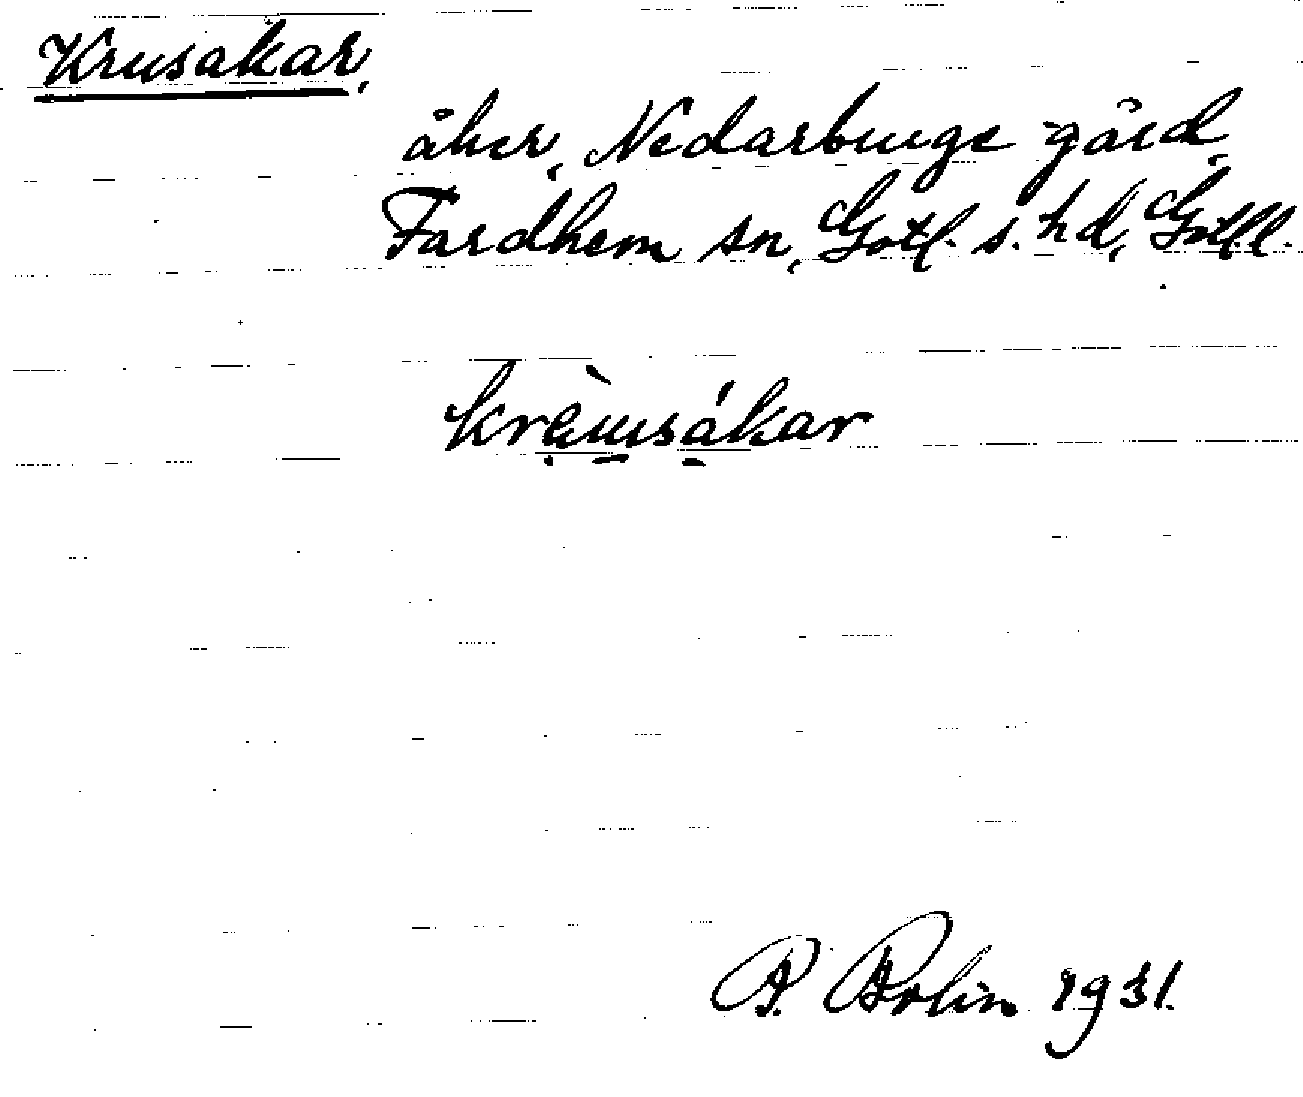 Krusakar,
åker, Nedarbuge gård
Fardhem sn, Gotl. s. hd, Gotl.l.
krèusákar
P. Bolin 1931.